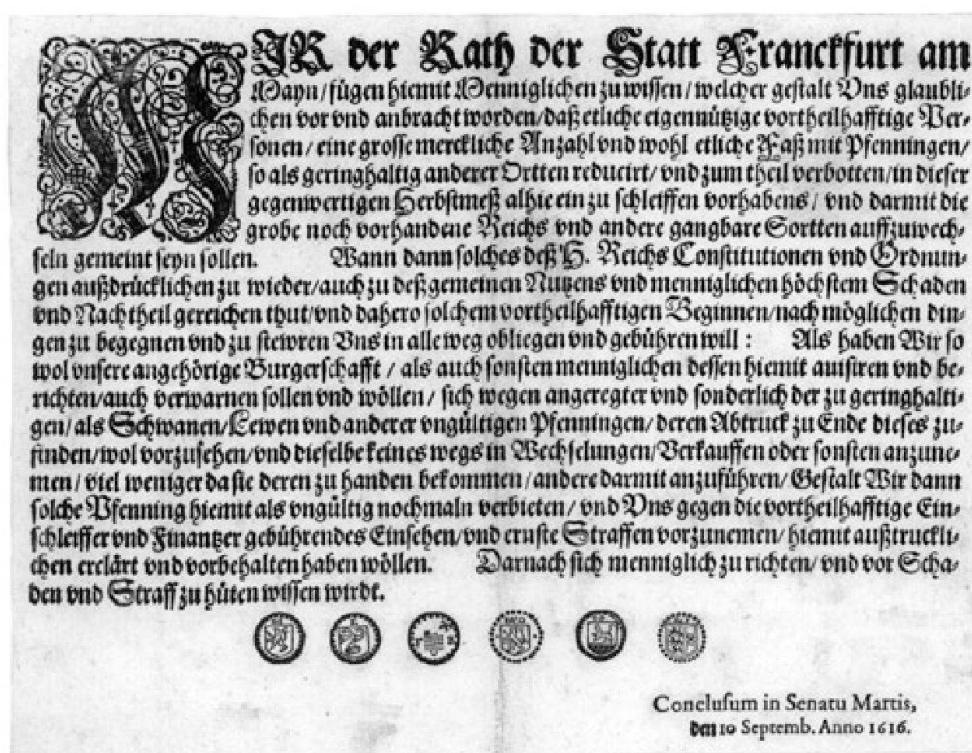 WIR der Rath der Statt Franckfurt am
Mayn / fügen hiemit Menniglichen zu wissen / welcher gestalt Vns glaubli-
chen vor vnd anbracht worden / daß etliche eigennützige vortheilhafftige Per-
sonen / eine grosse merckliche Anzahl vnd wohl etliche Faß mit Pfenningen /
so als geringhaltig anderer Ortten reducirt / vnd zum theil verbotten / in dieser
gegenwertigen Herbstmeß alhie ein zu schleiffen vorhabens / vnd darmit die
grobe noch vorhandene Reichs vnd andere gangbare Sortten auffzuwech-
seln gemeint seyn sollen. Wann dann solches deß H. Reichs Constitutionen vnd Ordnun-
gen außdrücklichen zu wieder / auch zu deß gemeinen Nutzens vnd menniglichen höchstem Schaden
vnd Nachtheil gereichen thut / vnd dahero solchem vortheilhafftigen Beginnen / nach möglichen din-
gen zu begegnen vnd zu stewren Vns in alle weg obliegen vnd gebühren will : Als haben Wir so
wol vnsere angehörige Burgerschafft / als auch sonsten menniglichen dessen hiemit avisiren vnd be-
richten / auch verwarnen sollen vnd wöllen / sich wegen angeregter vnd sonderlich der zu geringhalti-
gen / als Schwanen / Lewen vnd anderer vngültigen Pfenningen / deren Abtruck zu Ende dieses zu-
finden / wol vorzusehen / vnd dieselbe keines wegs in Wechselungen / Verkauffen oder sonsten anzune-
men / viel weniger da sie deren zu handen bekommen / andere darmit anzuführen / Gestalt Wir dann
solche Pfenning hiemit als vngültig nochmaln verbieten / vnd Vns gegen die vortheilhafftige Ein-
schleiffer vnd Finantzer gebührendes Einsehen / vnd ernste Straffen vorzunemen / hiemit außtruckli-
chen erclärt vnd vorbehalten haben wöllen. Darnach sich menniglich zu richten / vnd vor Scha-
den vnd Straff zu hüten wissen wirdt.
Conclusum in Senatu Martis,
den 10 Septemb. Anno 1616.